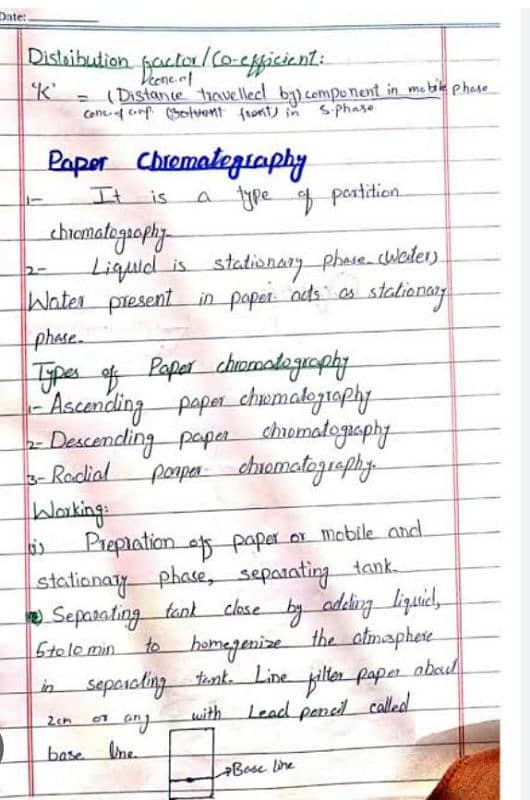 Date:
Distribution factor/Co-efficient:
conc. of
"K" = (Distance travelled by) component in mobile phase
conc. of comp. (Solvent front) in S.phase
Paper Chromatography
1- It is a type of partition
chromatography.
2- Liquid is stationary phase (Water)
Water present in paper acts as stationary
phase.
Types of Paper chromatography
1- Ascending paper chromatography
2- Descending paper chromatography
3- Radial paper chromatography.
Working:
i) Prepration of paper or mobile and
stationary phase, separating tank.
Separating tank close by adding liquid,
5 to 10 min to homegenize the atmosphere
in separating tank. Line filter paper about
2cm or any with Lead pencil called
base line.
Base line